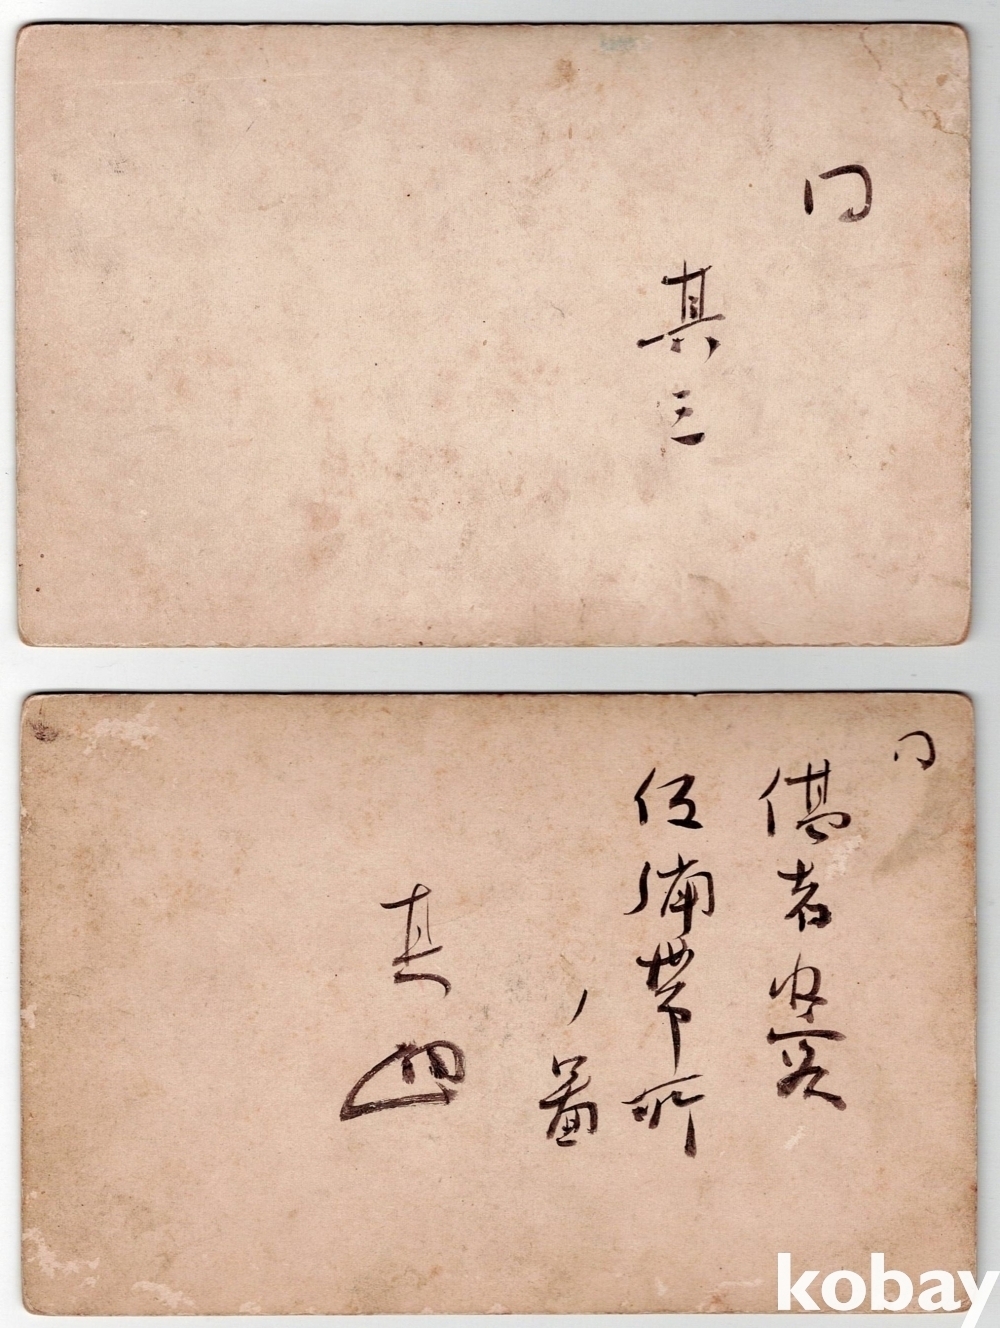 同
其三
同
傷者収容
仮繃帯所
ノ啚
其四
kobay